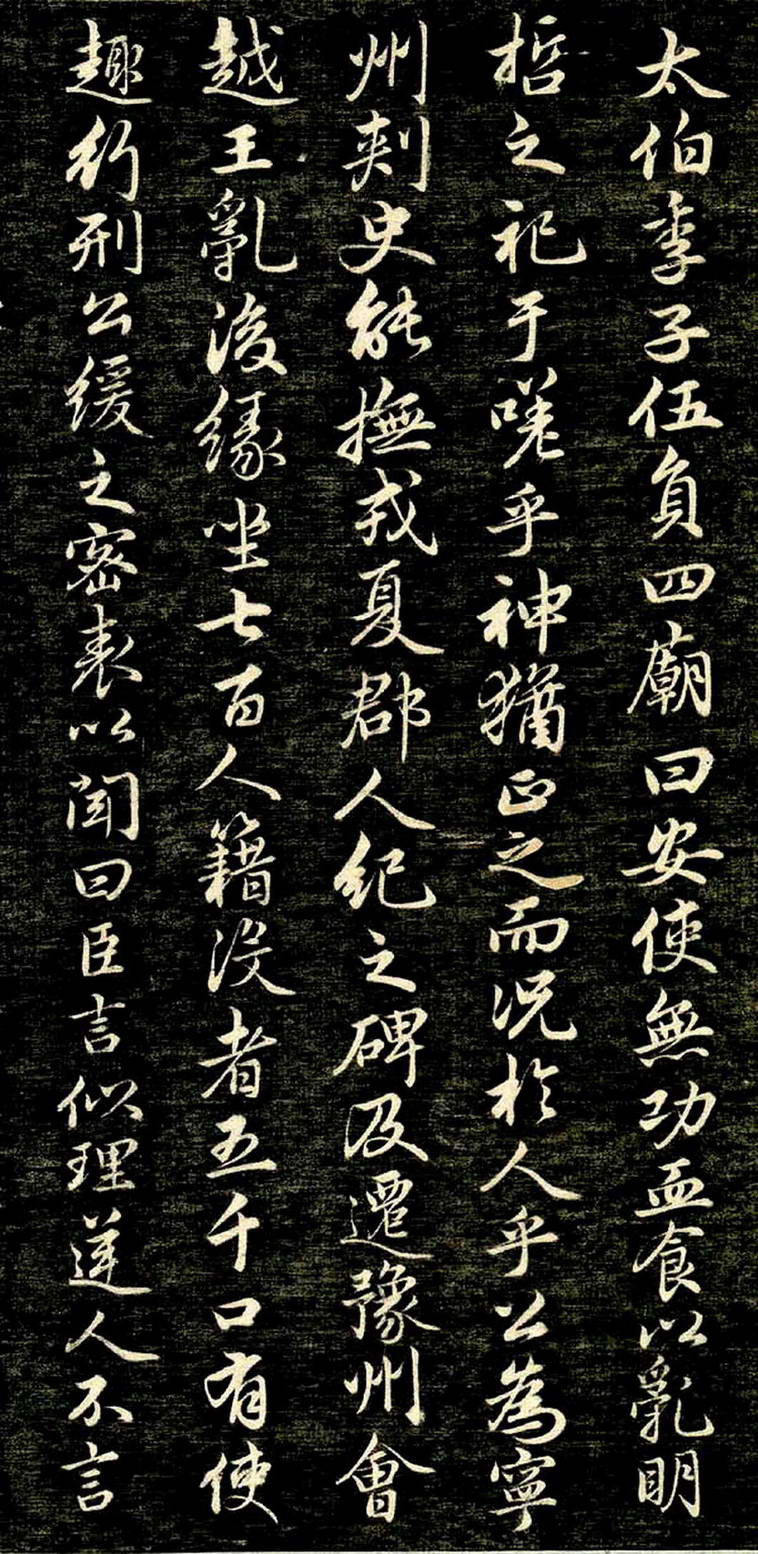 太伯季子伍負四廟曰安使無功血食以亂明
哲之祀于嗟乎神猶正之而況於人乎公為寧
州刺史能撫戎夏郡人紀之碑及遷豫州會
越王亂後緣坐七百人籍沒者五千口有使
趣行刑公緩之密表以聞曰臣言似理逆人不言